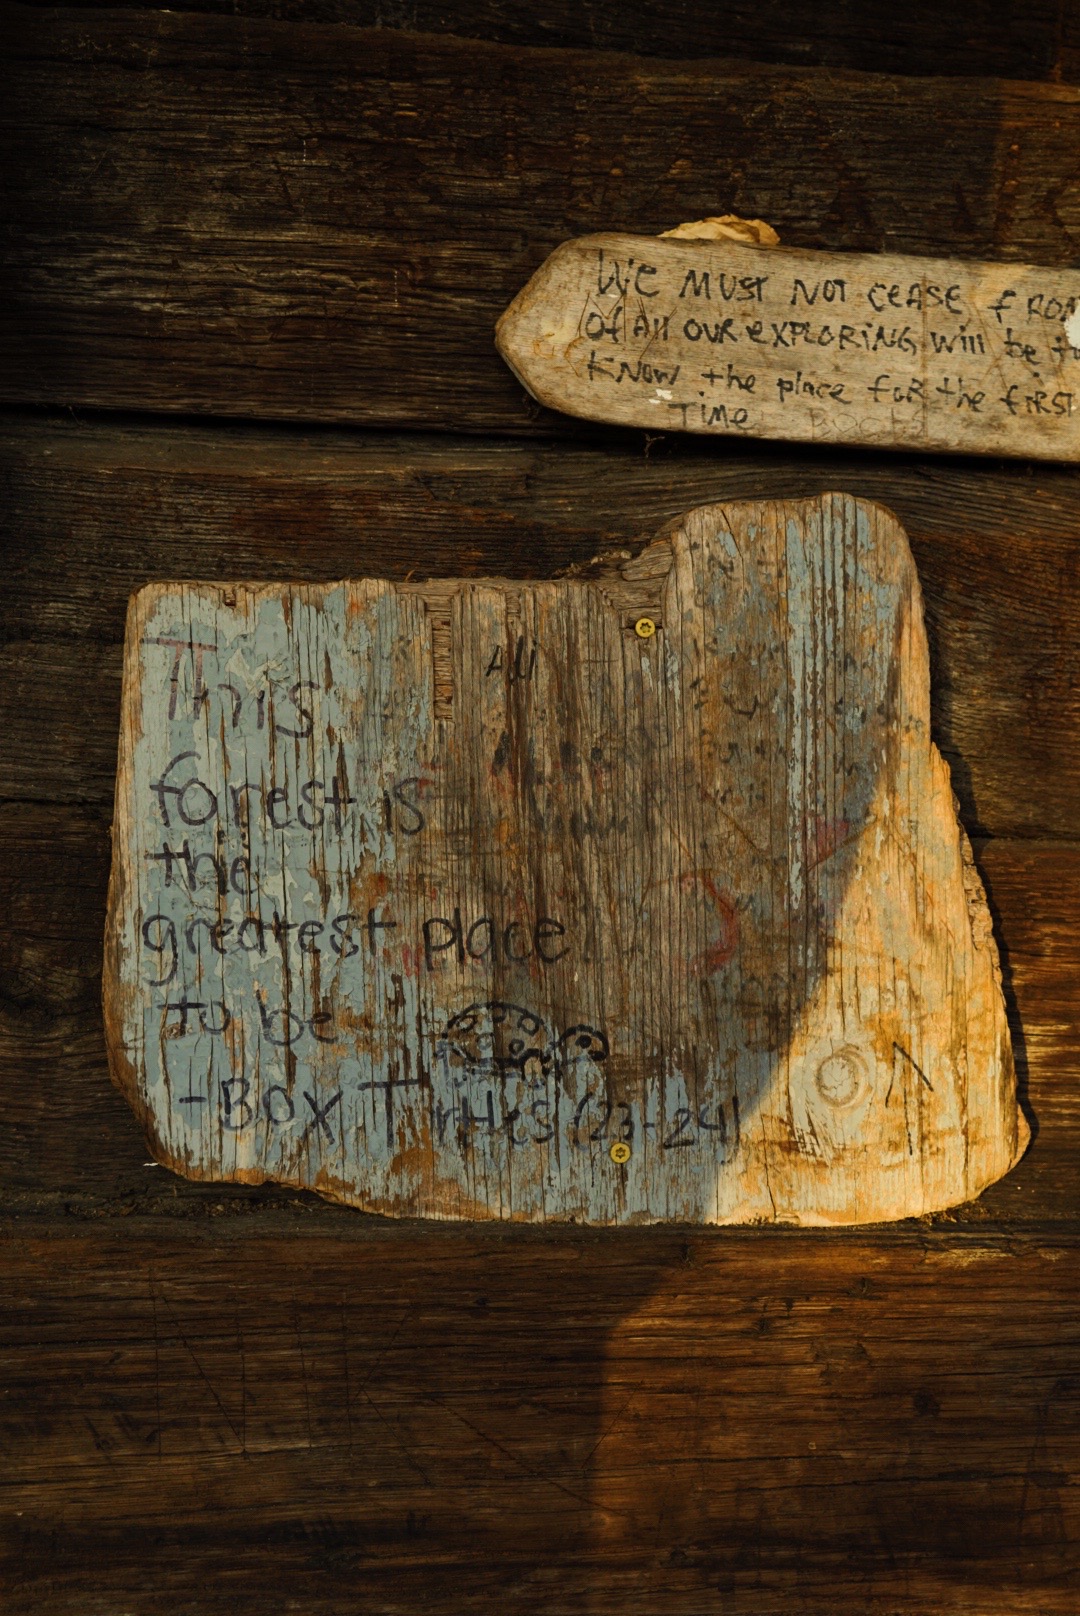 We MUST NOT CEASE fROM
Of All OUR eXPLORING will be
KNOW the place foR the fiRST
Time
Ali
This
forrest is
the
greatest place
to be
-Box Turtles (23-24)